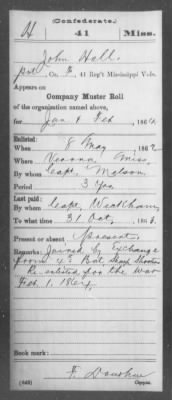 (Confederate.)
H 41 Miss.
John Hall
Pvt, Co. F, 41 Reg't Mississippi Vols.
Appears on
Company Muster Roll
of the organization named above,
for Jan & Feb, 1864.
Enlisted:
When 8 May, 1862
Where Verona, Miss.
By whom Capt. Nelson
Period 3 Yrs
Last paid:
By whom Capt.
To what time 31 Oct, 1863.
Present or absent Present
Remarks: Joined by Exchange
from 4th Bat Sharp Shooters
Re-enlisted for the war
Feb. 1, 1864.
Book mark:
(642) Copyist.